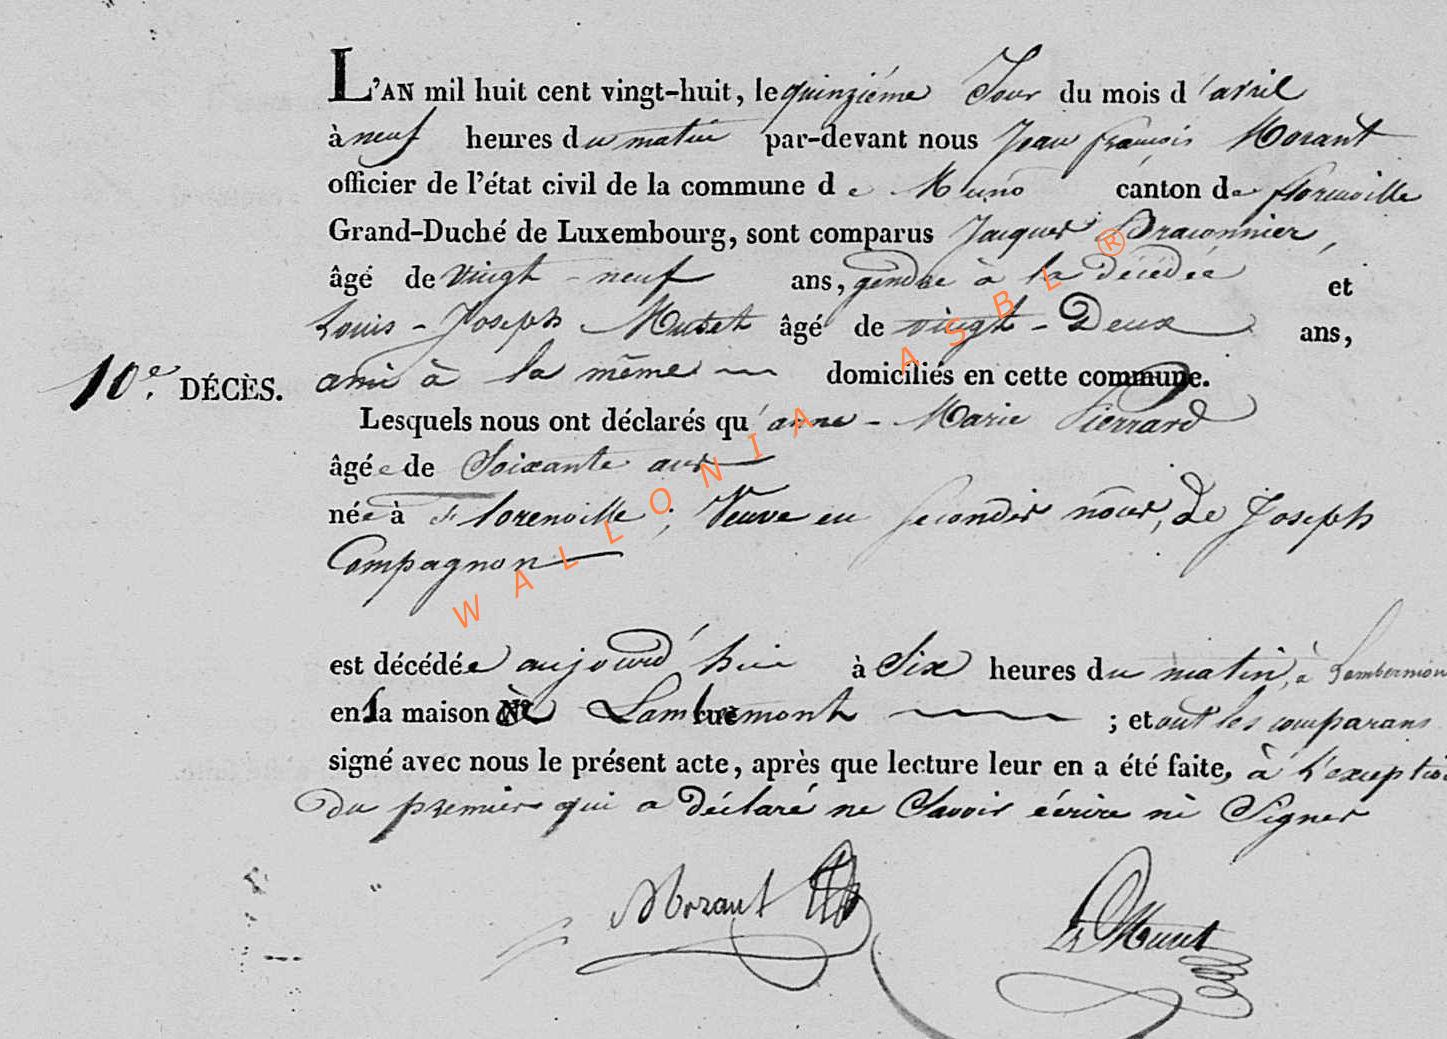 L'AN mil huit cent vingt-huit, le quinziéme Jour du mois d'avril
à neuf heures du matin par-devant nous Jean françois Morant
officier de l'état civil de la commune de Muno canton de florenville
Grand-Duché de Luxembourg, sont comparus Jacques Braconnier,
âgé de vingt-neuf ans, gendre à la décédée et
Louis-Joseph Mutet âgé de vingt-Deux ans,
10e. DÉCÈS. ami à la même domiciliés en cette commune.
Lesquels nous ont déclarés qu'anne-Marie Pierrard
âgée de Soixante ans
née à Florenville; Veuve en secondes nôces, de Joseph
Compagnon
est décédée aujourd'hui à Six heures du matin, à Lambermon
en sa maison à Lambermont ; et ont les comparans
signé avec nous le présent acte, après que lecture leur en a été faite, à l'exception
Du premier qui a déclaré ne Savoir écrire ni Signer
Morant
WALLONIA ASBL ®